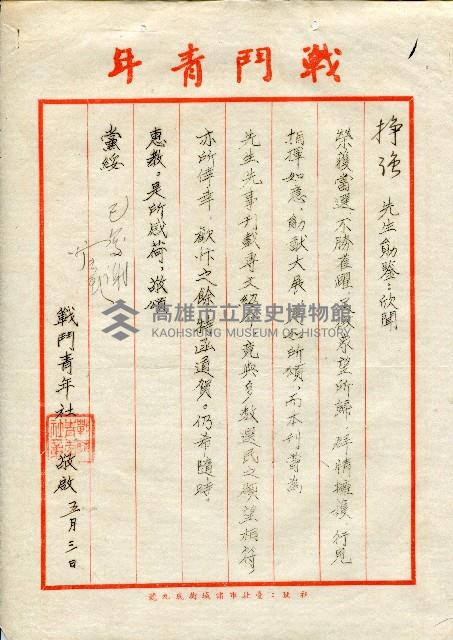 戰鬥青年
掙強 先生勛鑒：欣聞
榮獲當選，不勝雀躍，眾望所歸，群情擁護，行見
指揮如意，勛猷大展，所頌，而本刊曾為
先生先事刊載專文紹介，竟與多數選民之願望相符，
亦所僥幸，歡忭之餘，特函道賀。仍希隨時
惠教。是所感荷，敬頌
黨綏
戰鬥青年社 敬啟 五月三日
社址：臺北市
高雄市立歷史博物館
KAOHSIUNG MUSEUM OF HISTORY